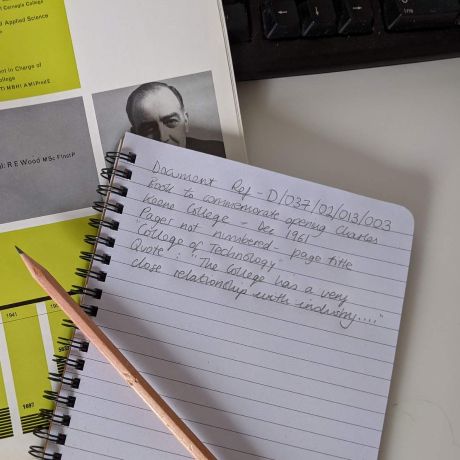 Carnegie College
Applied Science
nt in Charge of
ollege
TI MBHI AMIProdE
al: R E Wood MSc FInstP
1941
1697
Document Ref - D/037/02/013/003
Book to commemorate opening Charles
Keene College - Dec 1961
Pages not numbered - page title
"College of Technology"
Quote: "The College has a very
close relationship with industry...."